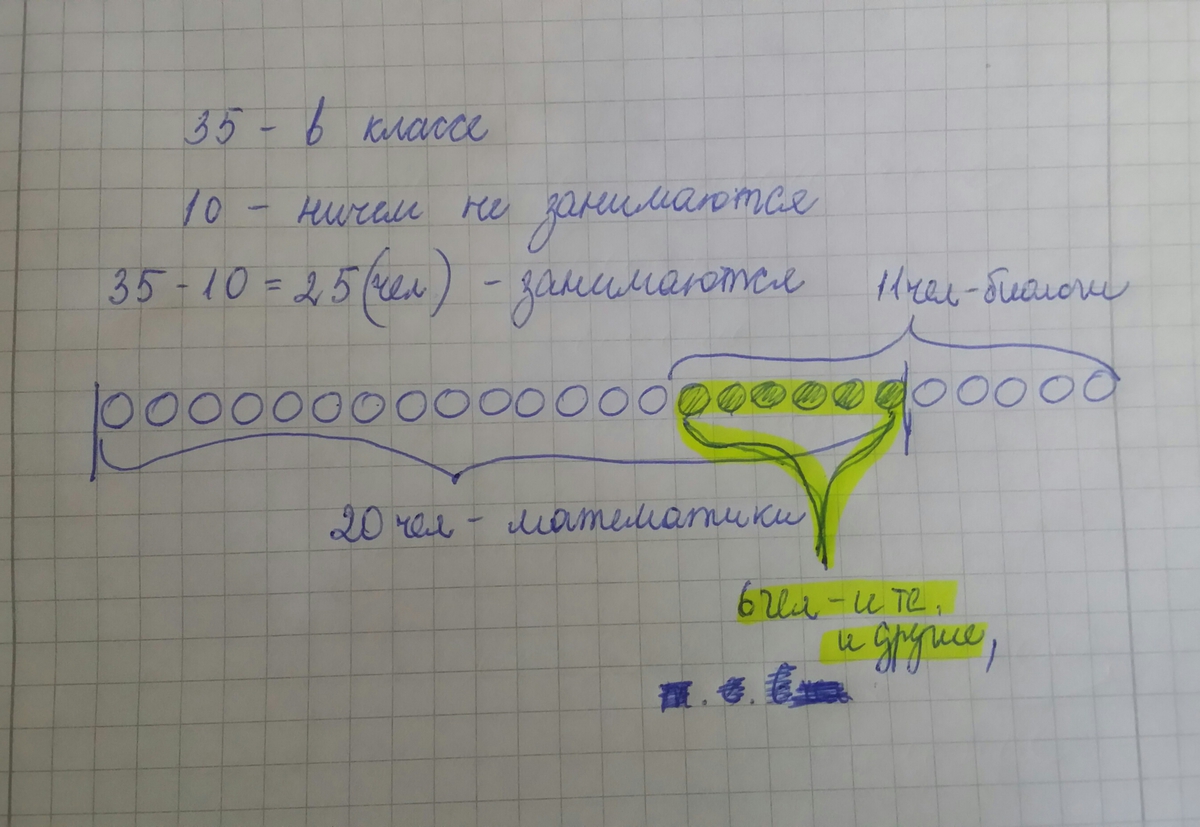 35 - в классе
10 - ничем не занимаются
35 - 10 = 25 (чел) - занимаются
11 чел - биологи
20 чел - математики
6 чел - и те,
и другие,